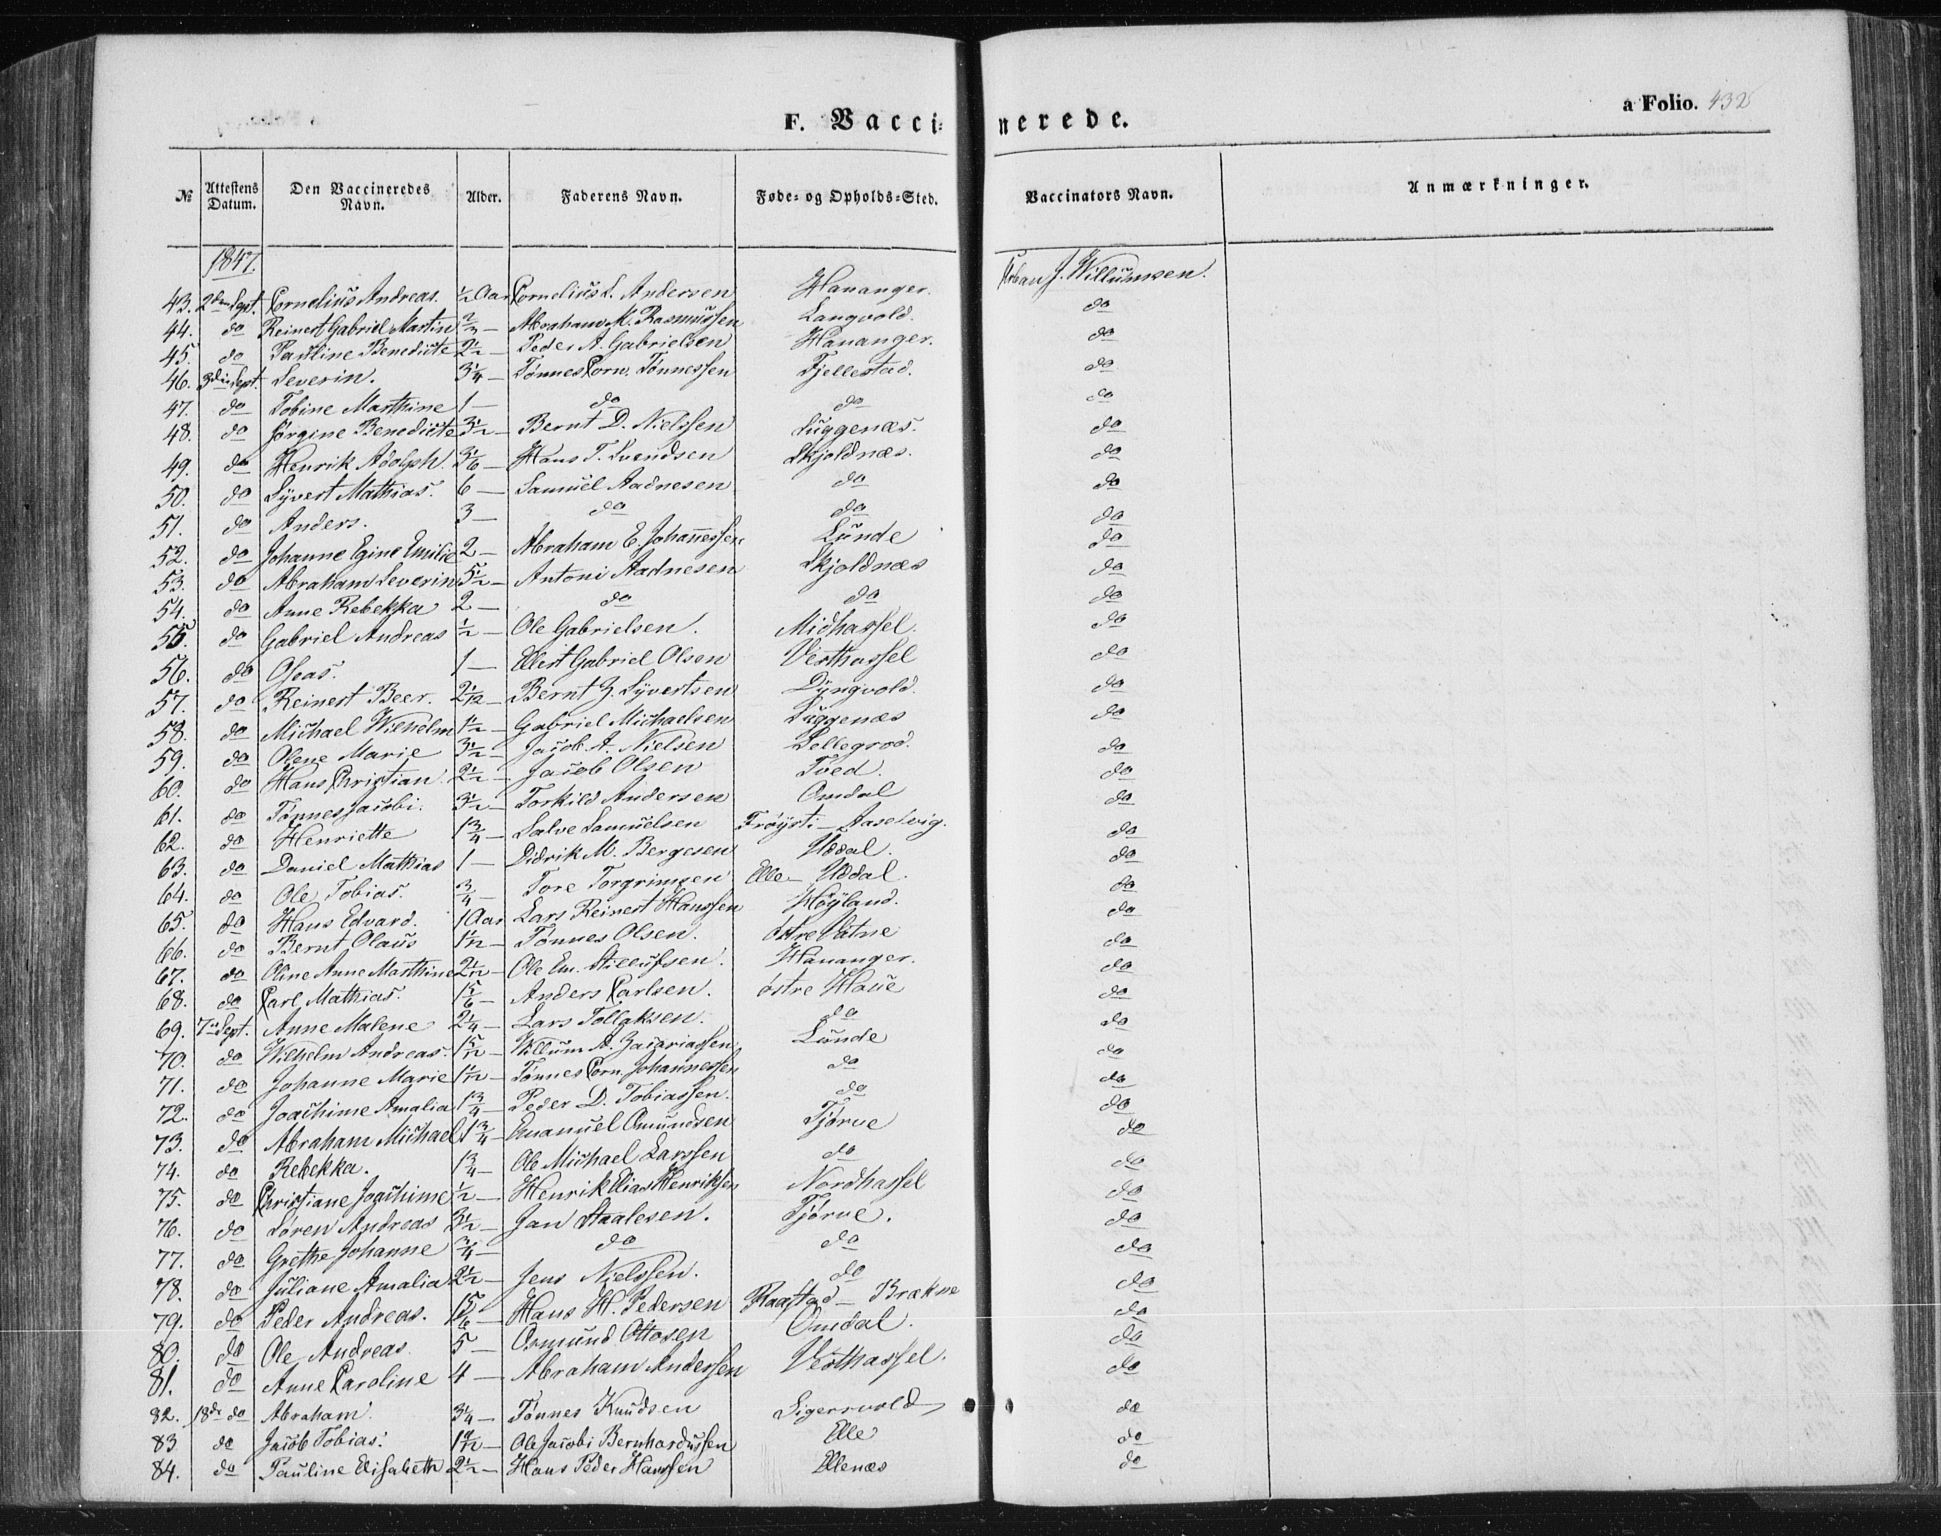 F. Vaccinerede.
a Folio. 432
№ Attestens Datum. Den Vaccineredes Navn. Alder. Faderens Navn. Føde- og Opholds-Sted. Vaccinators Navn. Anmærkninger.
1847.
43. 2den Sept. Cornelius Andreas. ½ Aar Cornelius L. Andersen Hananger. J. Willumsen.
44. do Reinert Gabriel Martin ⅔ — Abraham M. Rasmussen Langvold. do
45. do Pauline Benedicte 2½ — Peder A. Gabrielsen Hananger. do
46. 3die Sept. Severin. 3¼ — Tønnes Corn. Tønnessen Fjellestad. do
47. do Tobine Marthine 1 — do do do
48. do Jørgine Benedicte 3½ — Bernt D. Nielsen Luggenæs. do
49. do Henrik Adolph. 3⅙ — Hans T. Svendsen Skjoldnæs. do
50. do Syvert Mathias. 6 — Samuel Aadnesen do do
51. do Anders. 3 — do do do
52. do Johanne Egine Emilie 2 — Abraham E. Johannessen Lunde do
53. do Abraham Severin 5½ — Antoni Aadnesen Skjoldnæs do
54. do Anne Rebekka 2 — do do do
55. do Gabriel Andreas ½ — Ole Gabrielsen. Midhassel. do
56. do Oleas. 1 — Ellert Gabriel Olsen Vesthassel do
57. do Reinert Beer. 2 1/12 — Bernt G. Syvertsen Dyngvold. do
58. do Michael Wilhelm 1½ — Gabriel Michaelsen Luggenæs do
59. do Olene Marie 3½ — Jacob A. Nielsen Sellegrod. do
60. do Hans Christian 2½ — Jacob Olsen Tved. do
61. do Tønnes Jacobi. 3½ — Torkild Andersen Omdal do
62. do Henriette 1¾ — Salve Samuelsen Frøyst. — Aaselvig. do
63. do Daniel Mathias 1 — Didrik M. Bergesen Uddal. do
64. do Ole Tobias. ¾ — Tore Torgrimsen Elle — Uddal. do
65. do Hans Edvard. 1 Aar Lars Reinert Hanssen Høyland. do
66. do Bernt Olaus 1½ — Tønnes Olsen. østre Vatne do
67. do Oline Anne Marthine 2½ — Ole Em. Stillufsen. Hananger. do
68. do Carl Mathias. 1⅚ — Anders Carlsen. østre Haue do
69. 7de Sept. Anne Malene 2¼ — Lars Tollaksen. do do
70. do Wilhelm Andreas. 1 5/12 — Willum A. Zacariassen Lunde do
71. do Johanne Marie 1 1/12 — Tønnes Corn. Johannessen do do
72. do Joachime Amalia 1¾ — Peder D. Tobiassen. do do
73. do Abraham Michael 1¾ — Emanuel Omundsen Tjørve do
74. do Rebekka. 1¾ — Ole Michael Larssen do do
75. do Christiane Joachime ½ — Henrik Elias Henriksen Nordhassel do
76. do Søren Andreas 3½ — Jan Staalesen. Tjørve. do
77. do Grethe Johanne ¾ — do do do
78. do Juliane Amalia 2½ — Jens Nielssen. do do
79. do Peder Andreas. 1⅚ — Hans H. Pedersen Raastad — Brækne do
80. do Ole Andreas. 5 — Osmund Ottosen Omdal. do
81. do Anne Caroline 4 — Abraham Anderssen Vesthassel. do
82. 18de do Abraham. 3¼ — Tønnes Knudsen Sigersvold do
83 do Jacob Tobias. 1 9/12 — Ole Jacobi Bernhardussen Elle do
84. do Pauline Elisabeth 2½ — Hans Peder Hanssen Ellenæs do